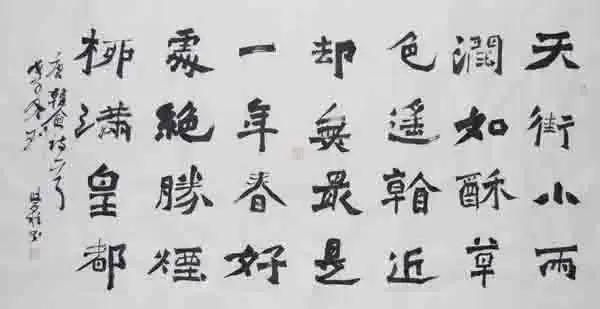 天街小雨
潤如酥草
色遥看近
却無最是
一年春好
處絶勝煙
柳滿皇都
唐韓愈詩一首